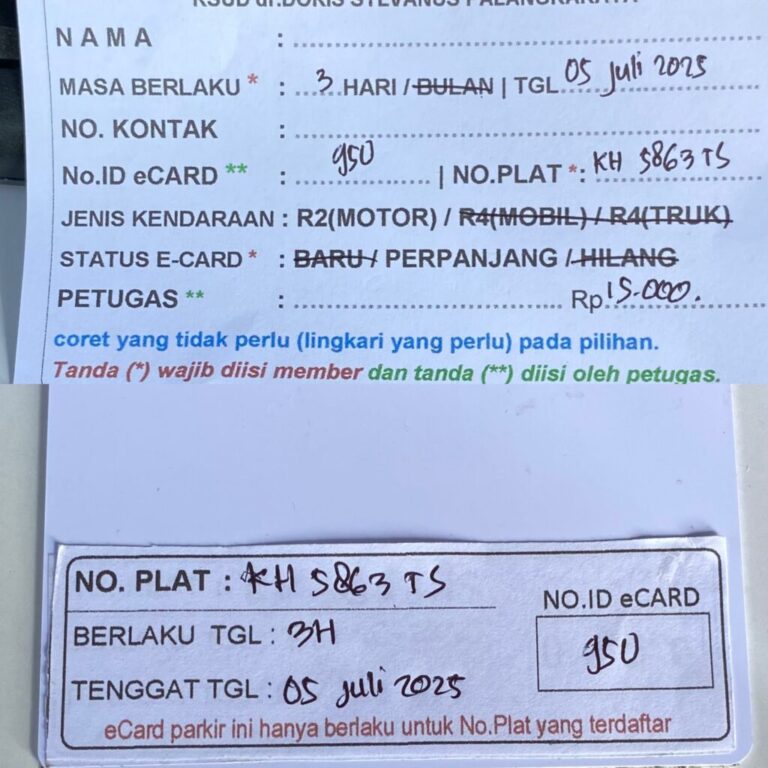 RSUD dr.DORIS SYLVANUS PALANGKARAYA
NAMA :
MASA BERLAKU * : 3 HARI / BULAN | TGL 05 Juli 2025
NO. KONTAK :
No.ID eCARD ** : 950 | NO.PLAT *: KH 5863 TS
JENIS KENDARAAN : R2(MOTOR) / R4(MOBIL) / R4(TRUK)
STATUS E-CARD * : BARU / PERPANJANG / HILANG
PETUGAS ** : Rp 15.000.
coret yang tidak perlu (lingkari yang perlu) pada pilihan.
Tanda (*) wajib diisi member dan tanda (**) diisi oleh petugas.
NO. PLAT : KH 5863 TS
NO.ID eCARD
BERLAKU TGL : 3H
950
TENGGAT TGL : 05 Juli 2025
eCard parkir ini hanya berlaku untuk No.Plat yang terdaftar